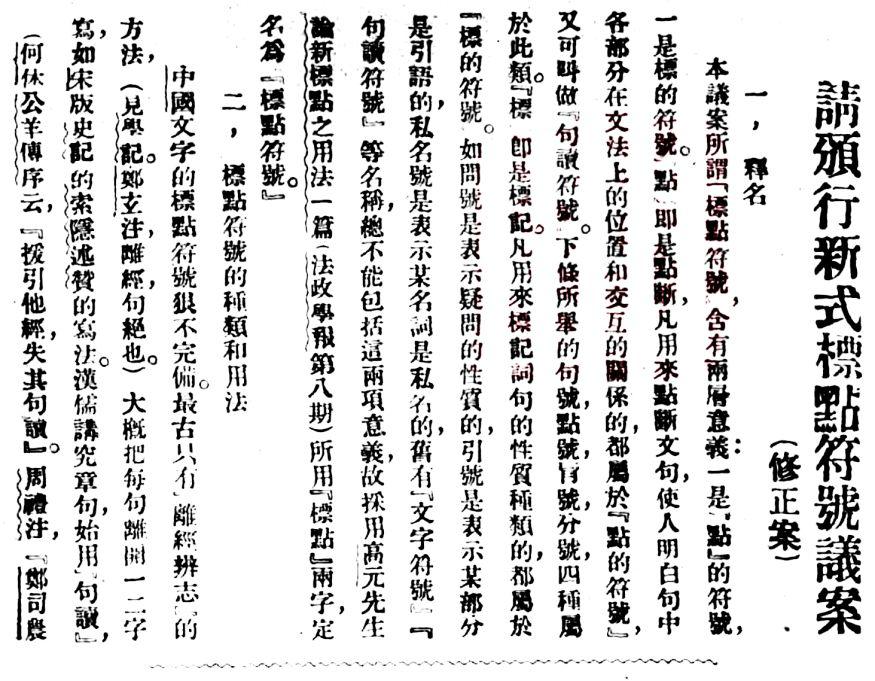 請頒行新式標點符號議案
（修正案）
一，釋名
本議案所謂『標點符號，』含有兩層意義：一是『點』的符號，
一是標的符號。『點』即是點斷，凡用來點斷文句，使人明白句中
各部分在文法上的位置和交互的關係的，都屬於『點的符號，』
又可叫做『句讀符號。』下條所舉的句號，點號，冒號，分號，四種屬
於此類。『標』即是標記。凡用來標記詞句的性質種類的，都屬於
『標的符號。』如問號是表示疑問的性質的，引號是表示某部分
是引語的，私名號是表示某名詞是私名的。舊有『文字符號』『
句讀符號』等名稱，總不能包括這兩項意義，故採用高元先生
論新標點之用法一篇（法政學報第八期）所用『標點』兩字，定
名爲『標點符號。』
二，標點符號的種類和用法
中國文字的標點符號狠不完備。最古只有『離經辨志』的
方法，（見學記。鄭玄注，離經，句絕也。）大概把每句離開一二字
寫，如宋版史記的索隱述贊的寫法。漢儒講究章句，始用『句讀』，
（何休公羊傳序云，『援引他經，失其句讀。』周禮注，『鄭司農